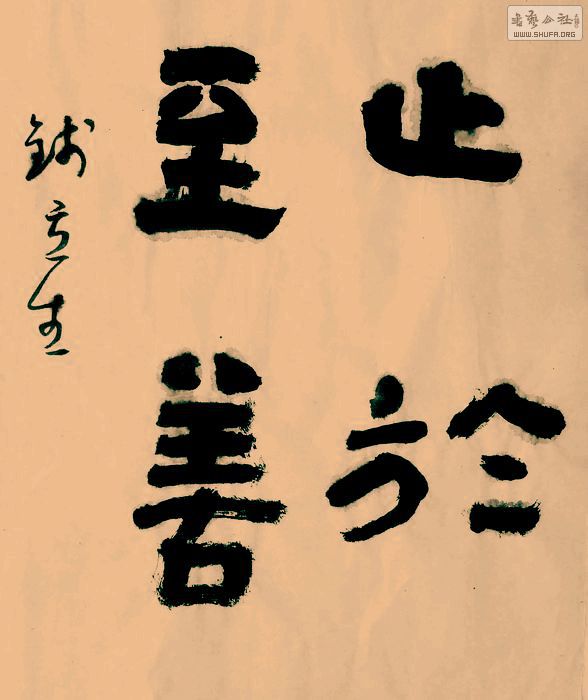 止於
至善
錢立生
書艺公社
WWW.SHUFA.ORG